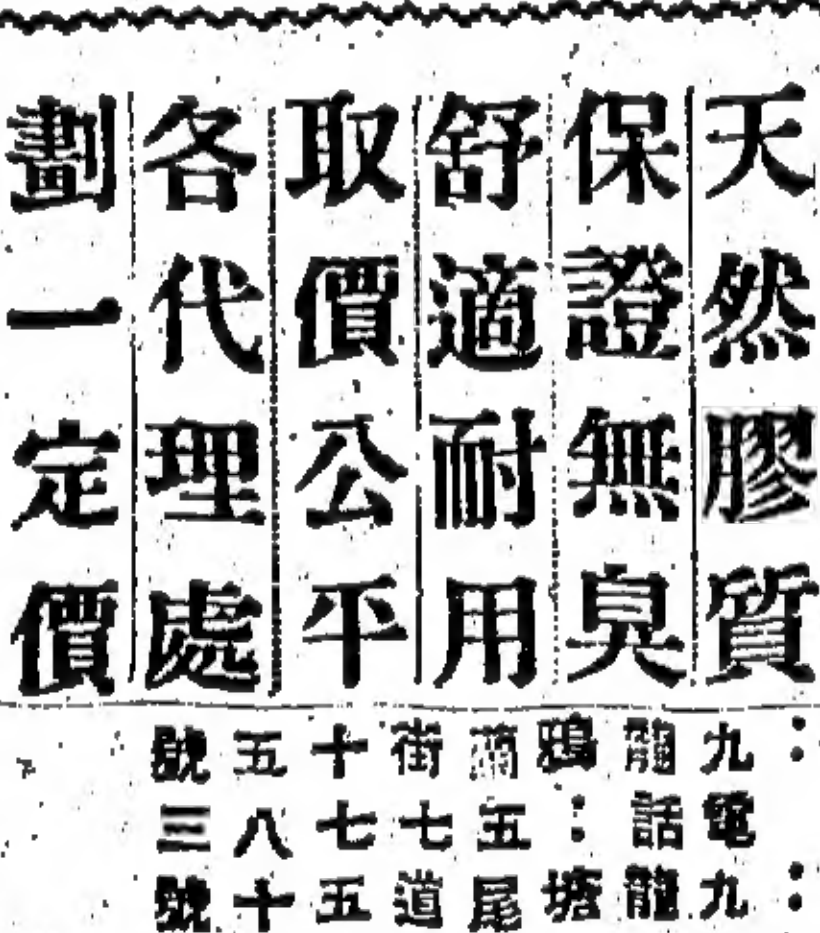 天然膠質
保證無臭
舒適耐用
取價公平
各代理處
劃一定價
：九龍鴉蘭街十五號
電話：五七七八三
：九龍塘尾道五十號